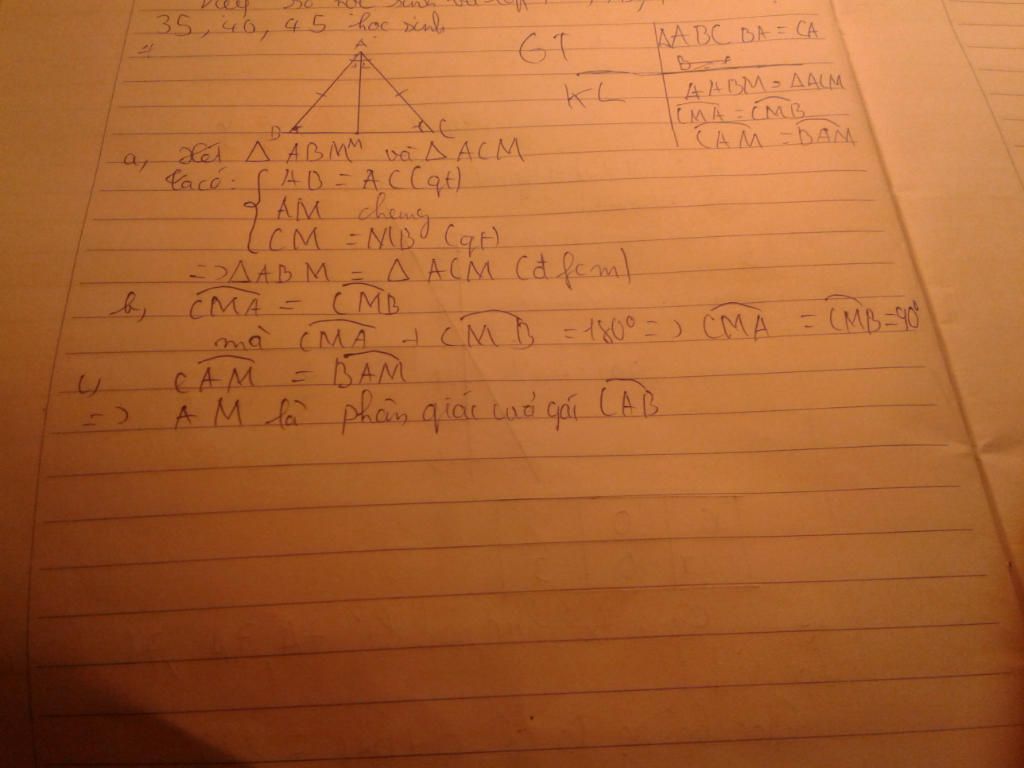 35, 40, 45 học sinh
A
B C
M
GT ΔABC BA = CA
KL ΔABM = ΔACM
CMA = CMB
CAM = BAM
a, Xét Δ ABM và Δ ACM
ta có: { AB = AC (gt)
AM chung
CM = MB (gt)
=> Δ ABM = Δ ACM (đfcm)
b, CMA = CMB
mà CMA + CMB = 180° => CMA = CMB = 90°
c, CAM = BAM
=> AM là phân giác CAB